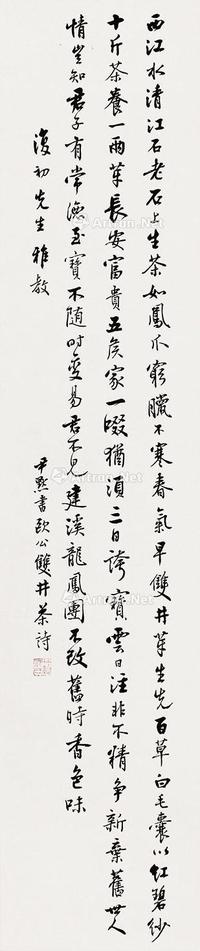 西江水清江石老石上生茶如鳳爪窮臘不寒春氣早雙井芽生先百草白毛囊以紅碧紗
十斤茶養一兩芽長安富貴五侯家一啜猶須三日誇寶雲日注非不精爭新棄舊世人
情豈知君子有常德至寶不隨時變易君不見建溪龍鳳團不改舊時香色味
復初先生雅教
尹默書歐公雙井茶詩